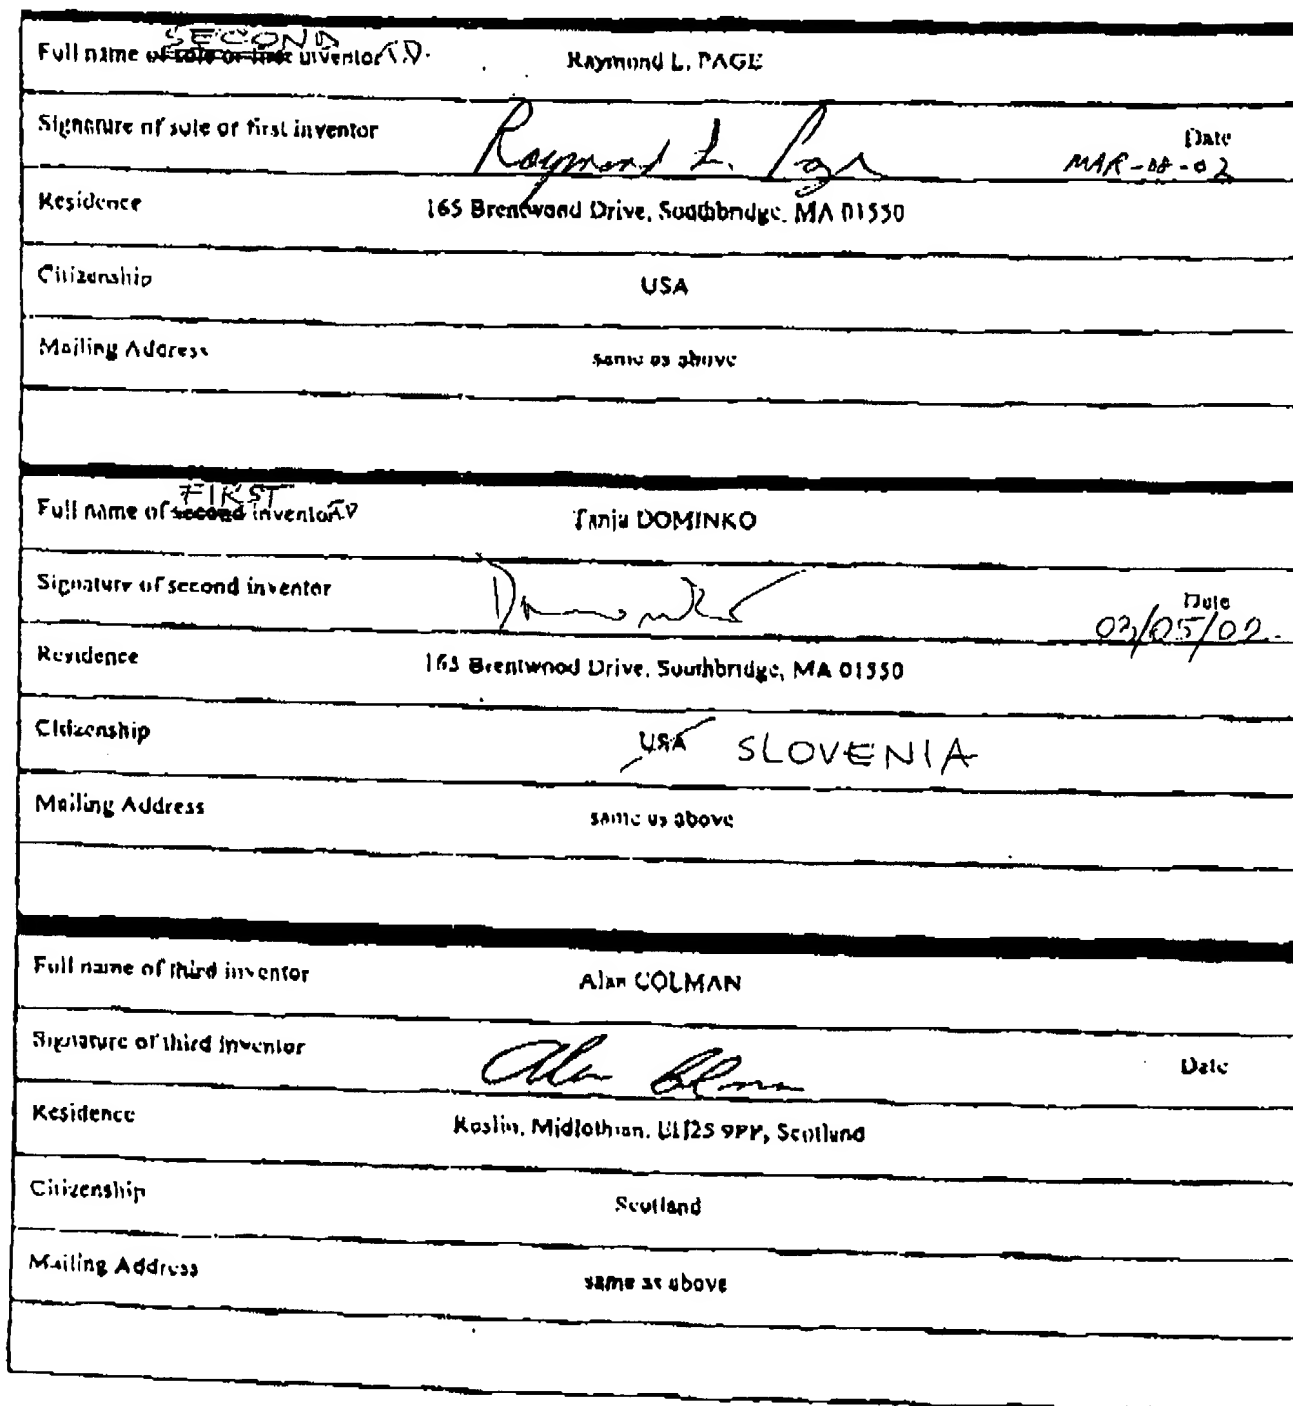 SECOND
Full name of sole or first inventor T.D. Raymond L. PAGE
Signature of sole or first inventor Raymond L. Page Date
MAR-08-02
Residence 165 Brentwood Drive, Southbridge, MA 01550
Citizenship USA
Mailing Address same as above
FIRST
Full name of second inventor T.D Tanja DOMINKO
Signature of second inventor Dominko Date
03/05/02
Residence 165 Brentwood Drive, Southbridge, MA 01550
Citizenship USA SLOVENIA
Mailing Address same as above
Full name of third inventor Alan COLMAN
Signature of third inventor Alan Colman Date
Residence Roslin, Midlothian, EH25 9PP, Scotland
Citizenship Scotland
Mailing Address same as above